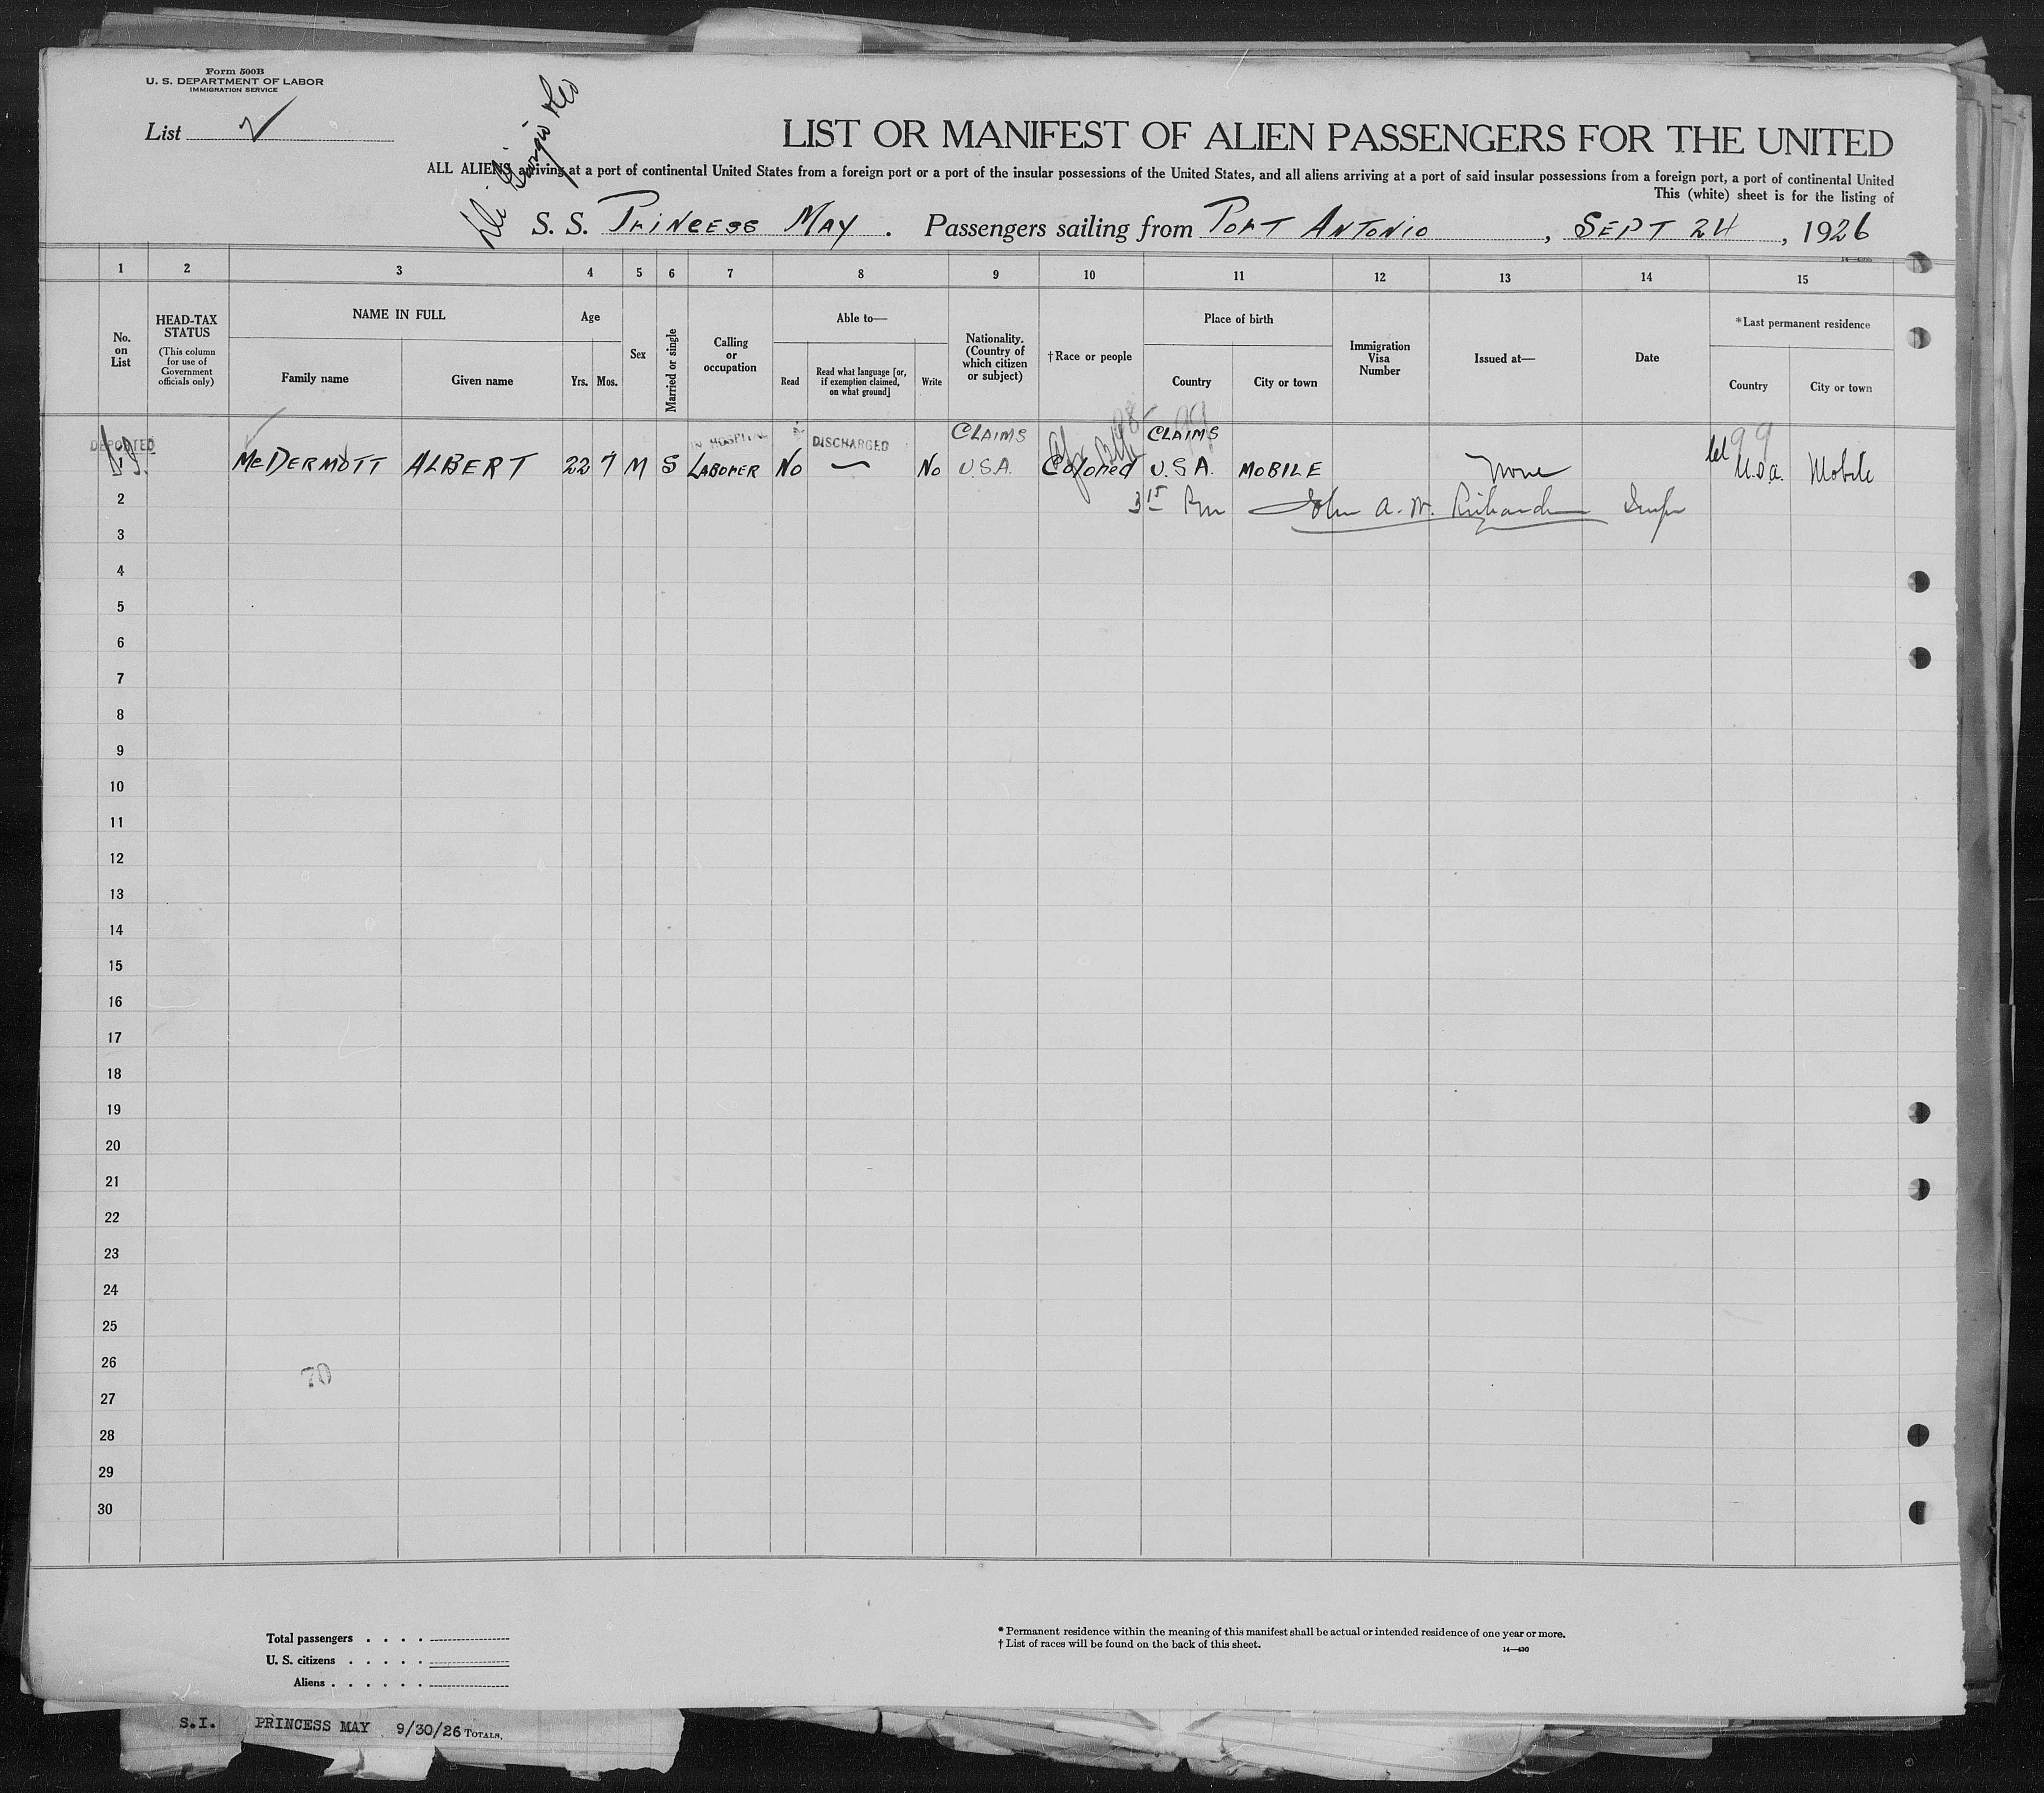 Form 500B
U. S. DEPARTMENT OF LABOR
IMMIGRATION SERVICE
List
LIST OR MANIFEST OF ALIEN PASSENGERS FOR THE UNITED
ALL ALIENS arriving at a port of continental United States from a foreign port or a port of the insular possessions of the United States, and all aliens arriving at a port of said insular possessions from a foreign port, a port of continental United
This (white) sheet is for the listing of
S. S. PRINCESS MAY . Passengers sailing from PORT ANTONIO , SEPT 24 , 1926
1 2 3 4 5 6 7 8 9 10 11 12 13 14 15
No. on List
HEAD-TAX STATUS
(This column for use of Government officials only)
NAME IN FULL
Family name
Given name
Age
Yrs. Mos.
Sex
Married or single
Calling or occupation
Able to—
Read
Read what language [or, if exemption claimed, on what ground]
Write
Nationality. (Country of which citizen or subject)
†Race or people
Place of birth
Country
City or town
Immigration Visa Number
Issued at—
Date
*Last permanent residence
Country
City or town
DEPORTED IN HOSPITAL DISCHARGED CLAIMS CLAIMS 99
McDERMOTT ALBERT 22 7 M S LABORER No — No U.S.A. Colored U.S.A. MOBILE None U.S.a. Mobile
2 John A. W. Richardson Insp
3
4
5
6
7
8
9
10
11
12
13
14
15
16
17
18
19
20
21
22
23
24
25
26
70
27
28
29
30
Total passengers . . . .
U. S. citizens . . . . .
Aliens . . . . . .
* Permanent residence within the meaning of this manifest shall be actual or intended residence of one year or more.
† List of races will be found on the back of this sheet.
14—430
S.I. PRINCESS MAY 9/30/26 TOTALS.